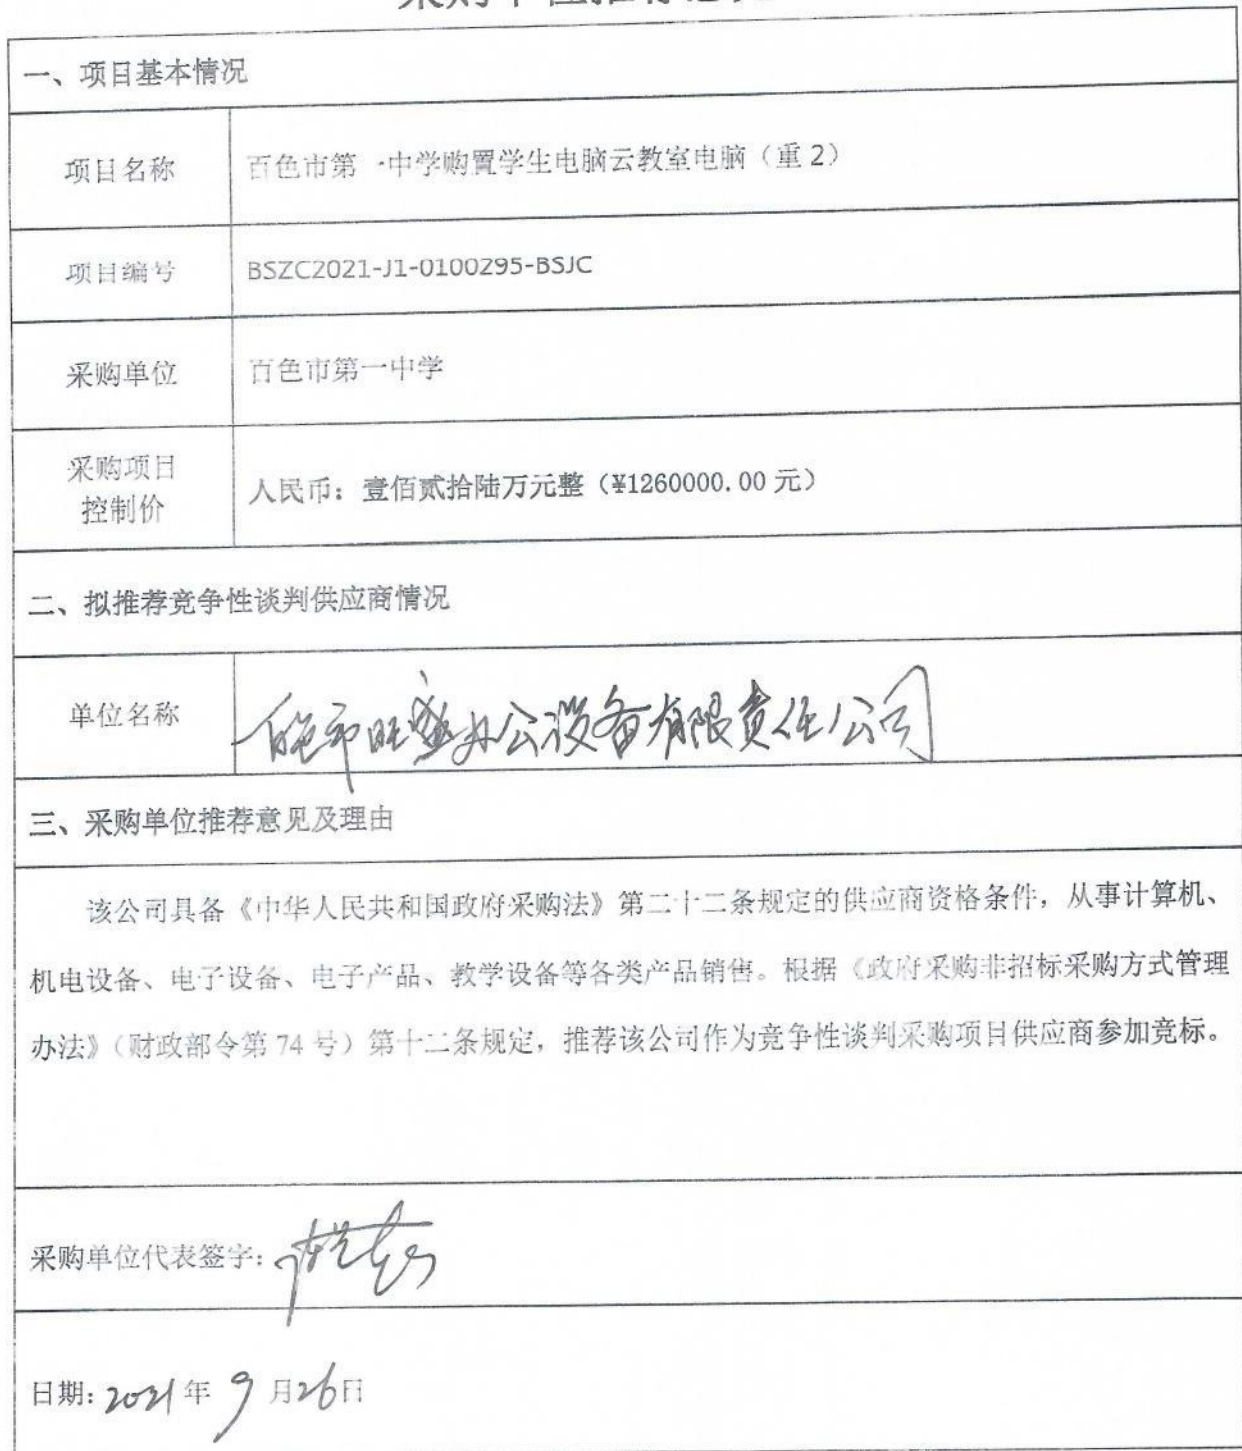 采购单位推荐意见
一、项目基本情况
项目名称
百色市第一中学购置学生电脑云教室电脑（重2）
项目编号
BSZC2021-J1-0100295-BSJC
采购单位
百色市第一中学
采购项目
控制价
人民币：壹佰贰拾陆万元整（¥1260000.00元）
二、拟推荐竞争性谈判供应商情况
单位名称
百色市旺盛办公设备有限责任公司
三、采购单位推荐意见及理由
该公司具备《中华人民共和国政府采购法》第二十二条规定的供应商资格条件，从事计算机、
机电设备、电子设备、电子产品、教学设备等各类产品销售。根据《政府采购非招标采购方式管理
办法》（财政部令第74号）第十二条规定，推荐该公司作为竞争性谈判采购项目供应商参加竞标。
采购单位代表签字：
日期：2021年9月26日